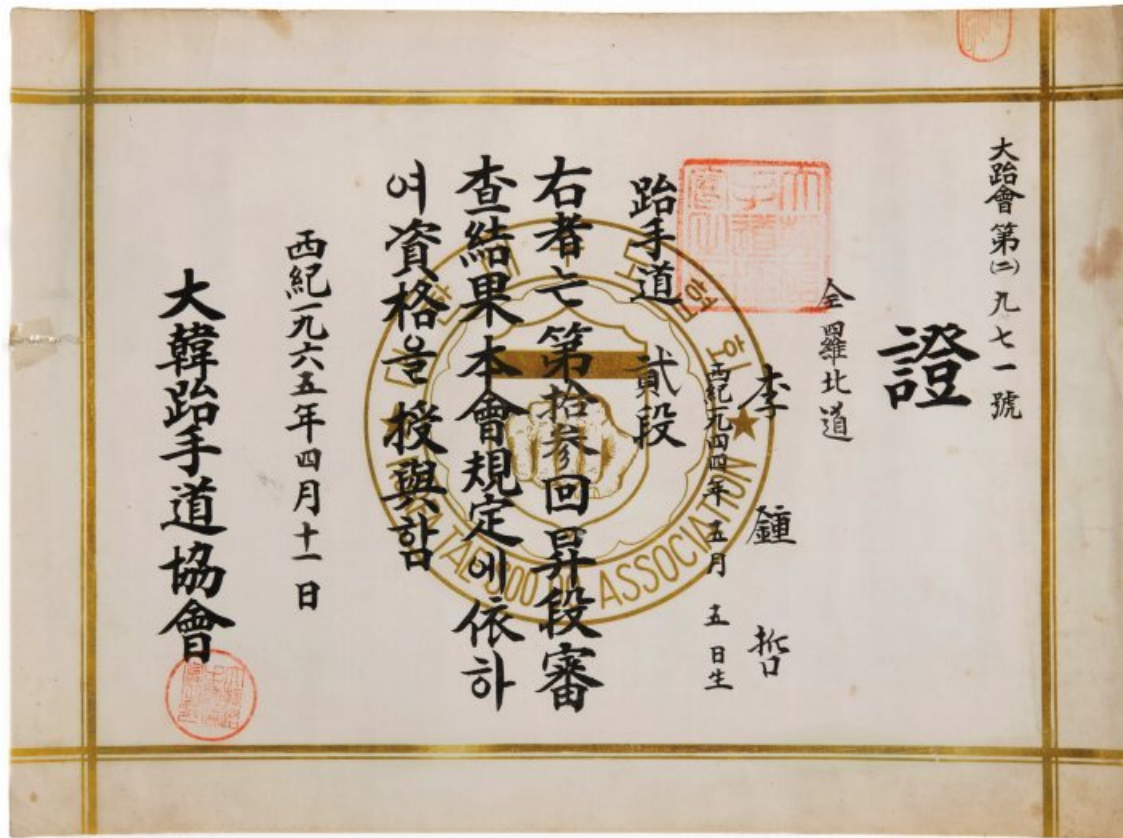 大跆會 第(二) 九七一 號
證
全羅北道
李鍾哲
西紀一九四四年 五月 五日生
跆手道 貳段
右者는 第拾參回昇段審
査結果本會規定에依하
여資格을授與함
西紀一九六五年四月十一日
大韓跆手道協會
TAE SOO DO ASSOCIATION